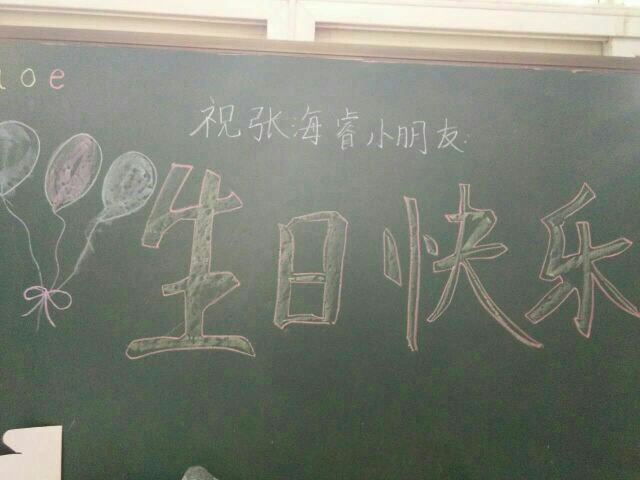 a o e
祝张海睿小朋友:
生日快乐